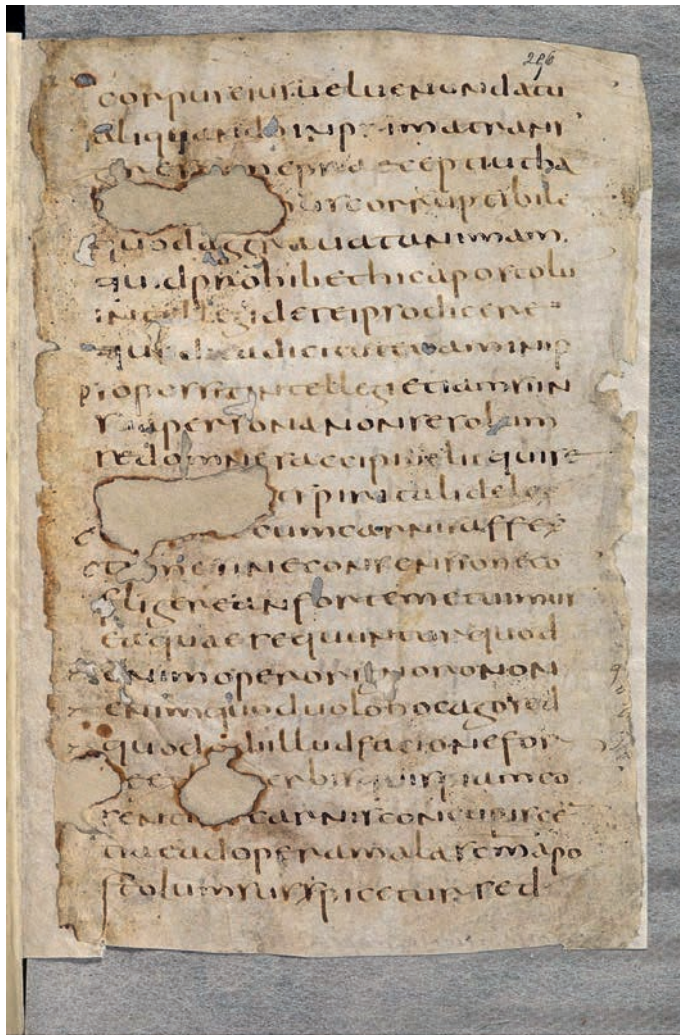 corpus eius uel uenundatu
aliquando in prima trans
gressione praecepti ut ha
us corruptibile
quod aggrauat animam.
quid prohibet hic apostolu
intellegi de se ipso dicere
dicit ut etiam in ip
possit intellegi etiam si in
sua persona non se solum
sed omnes accipi uelit qui se
spiritali delec
cum carnis affec
sine consensione co
fligere an forte metuimus
ea quae sequuntur quod
enim operor ignoro non
enim quod uolo hoc ago sed
quod odi illud facio ne for
uerbis quispiam co
carnis concupisce
tiae ad opera mala apo
stolum suspicetur sed